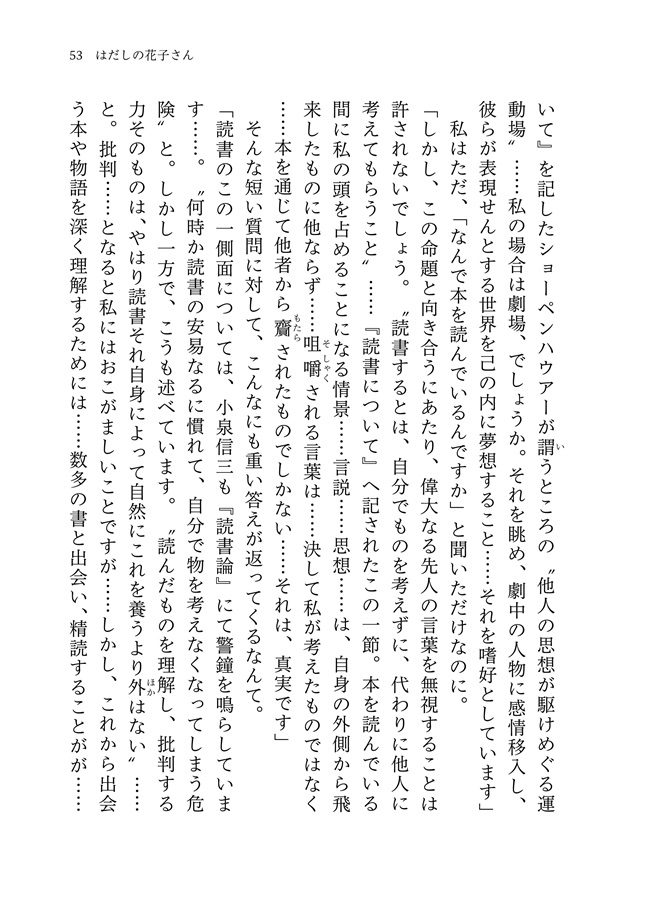 53 はだしの花子さん
いて』を記したショーペンハウアーが謂うところの〝他人の思想が駆けめぐる運
動場〟……私の場合は劇場、でしょうか。それを眺め、劇中の人物に感情移入し、
彼らが表現せんとする世界を己の内に夢想すること……それを嗜好としています」
私はただ、「なんで本を読んでいるんですか」と聞いただけなのに。
「しかし、この命題と向き合うにあたり、偉大なる先人の言葉を無視することは
許されないでしょう。〝読書するとは、自分でものを考えずに、代わりに他人に
考えてもらうこと〟……『読書について』へ記されたこの一節。本を読んでいる
間に私の頭を占めることになる情景……言説……思想……は、自身の外側から飛
来したものに他ならず……咀嚼される言葉は……決して私が考えたものではなく
……本を通じて他者から齎されたものでしかない……それは、真実です」
そんな短い質問に対して、こんなにも重い答えが返ってくるなんて。
「読書のこの一側面については、小泉信三も『読書論』にて警鐘を鳴らしていま
す……。〝何時か読書の安易なるに慣れて、自分で物を考えなくなってしまう危
険〟と。しかし一方で、こうも述べています。〝読んだものを理解し、批判する
力そのものは、やはり読書それ自身によって自然にこれを養うより外はない〟……
と。批判……となると私にはおこがましいことですが……しかし、これから出会
う本や物語を深く理解するためには……数多の書と出会い、精読することがが……